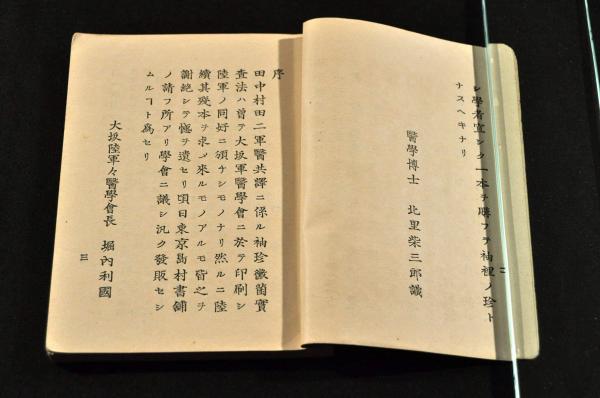 シ學者宜シク一本ヲ購フテ袖裡ノ珍ト
ナスヘキナリ
醫學博士 北里柴三郎識
二
序
田中村田二軍醫共譯ニ係ル袖珍黴菌實
査法ハ曾テ大坂軍醫學會ニ於テ印刷シ
陸軍ノ同好ニ頒チシモノナリ然ルニ陸
續其殘本ヲ求メ來ルモノアルモ皆之ヲ
謝絶シテ憾ヲ遺セリ頃日東京島村書舖
ノ請フ所アリ學會ニ議シ汎ク發販セシ
ムルヿト爲セリ
大坂陸軍々醫學會長 堀内利國
三